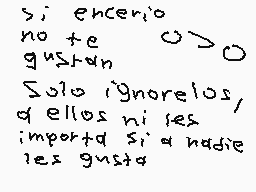 si encerio
no te
gustan
Solo ignorelos,
a ellos ni les
importa si a nadie
les gusta